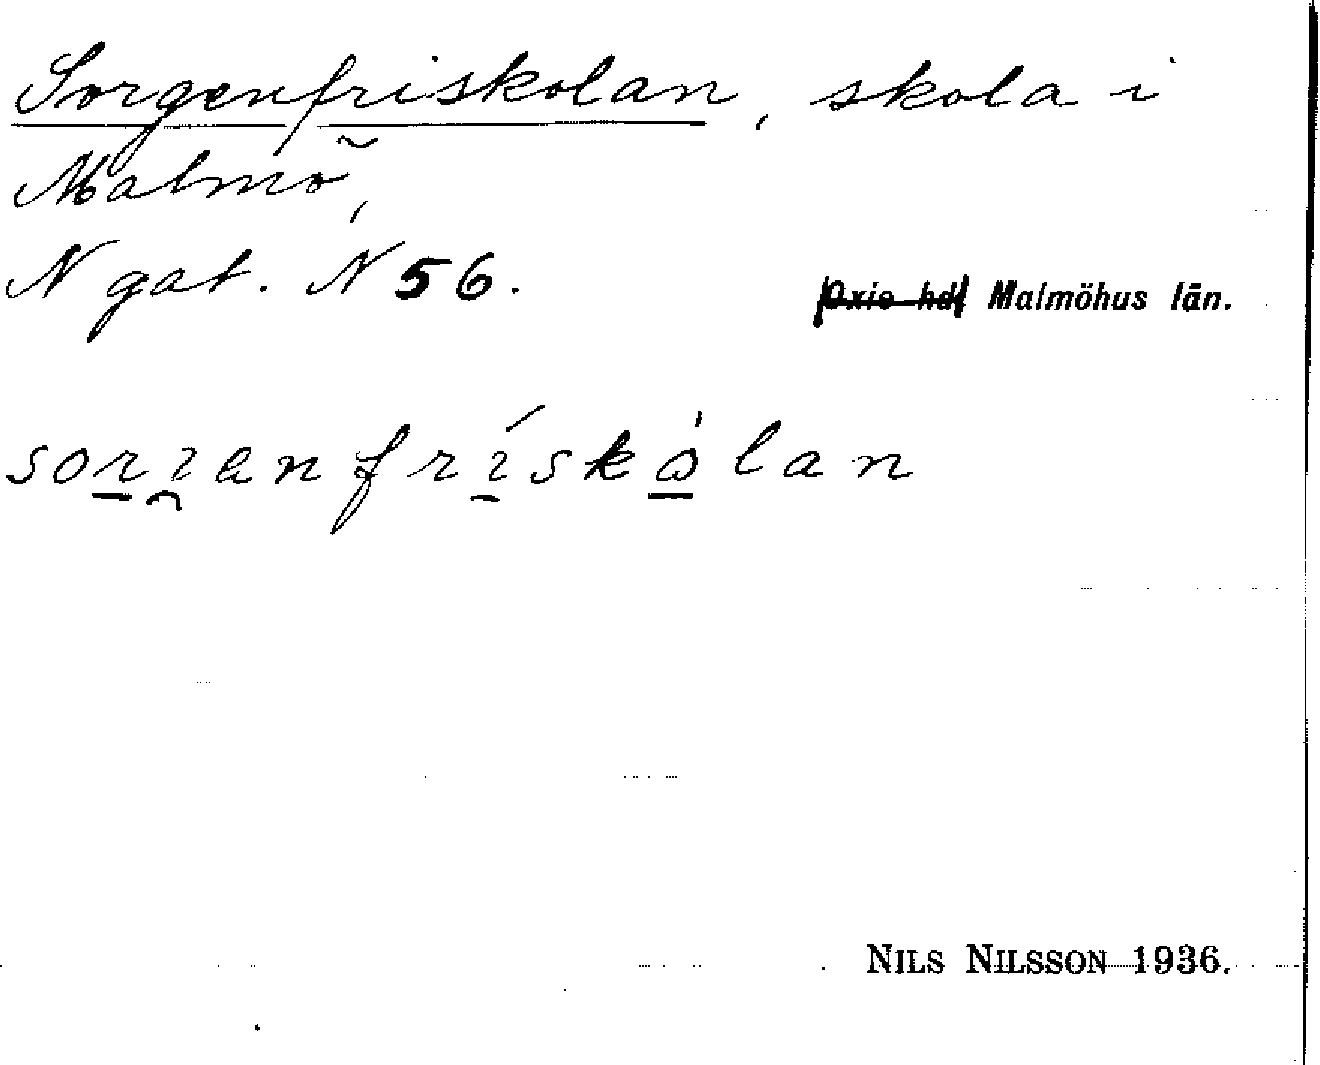 Sorgenfriskolan, skola i
Malmö,
N gat. N 56.
Oxie hd Malmöhus län.
NILS NILSSON 1936.